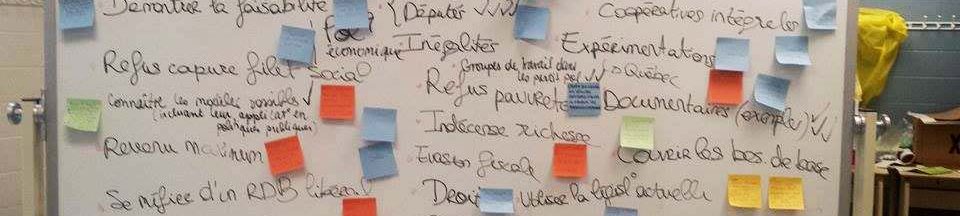 Démontrer la faisabilité
{Députés ✓✓✓
Coopératives intégrales
économique
Inégalités
Expérimentations
Refus coupure filet social
Groupes de travail dans
les partis pol ✓✓
Québec
Refus pauvreté
Documentaires (exemples) ✓✓
Connaître les modèles possibles ✓
(incluant leur applicat° en
politiques publiques)
Indécense richesse
Revenu maximum
Évasion fiscale
Couvrir les bes. de base
Se méfier d'un RDB libéral!
Droit
Utiliser la législ° actuelle